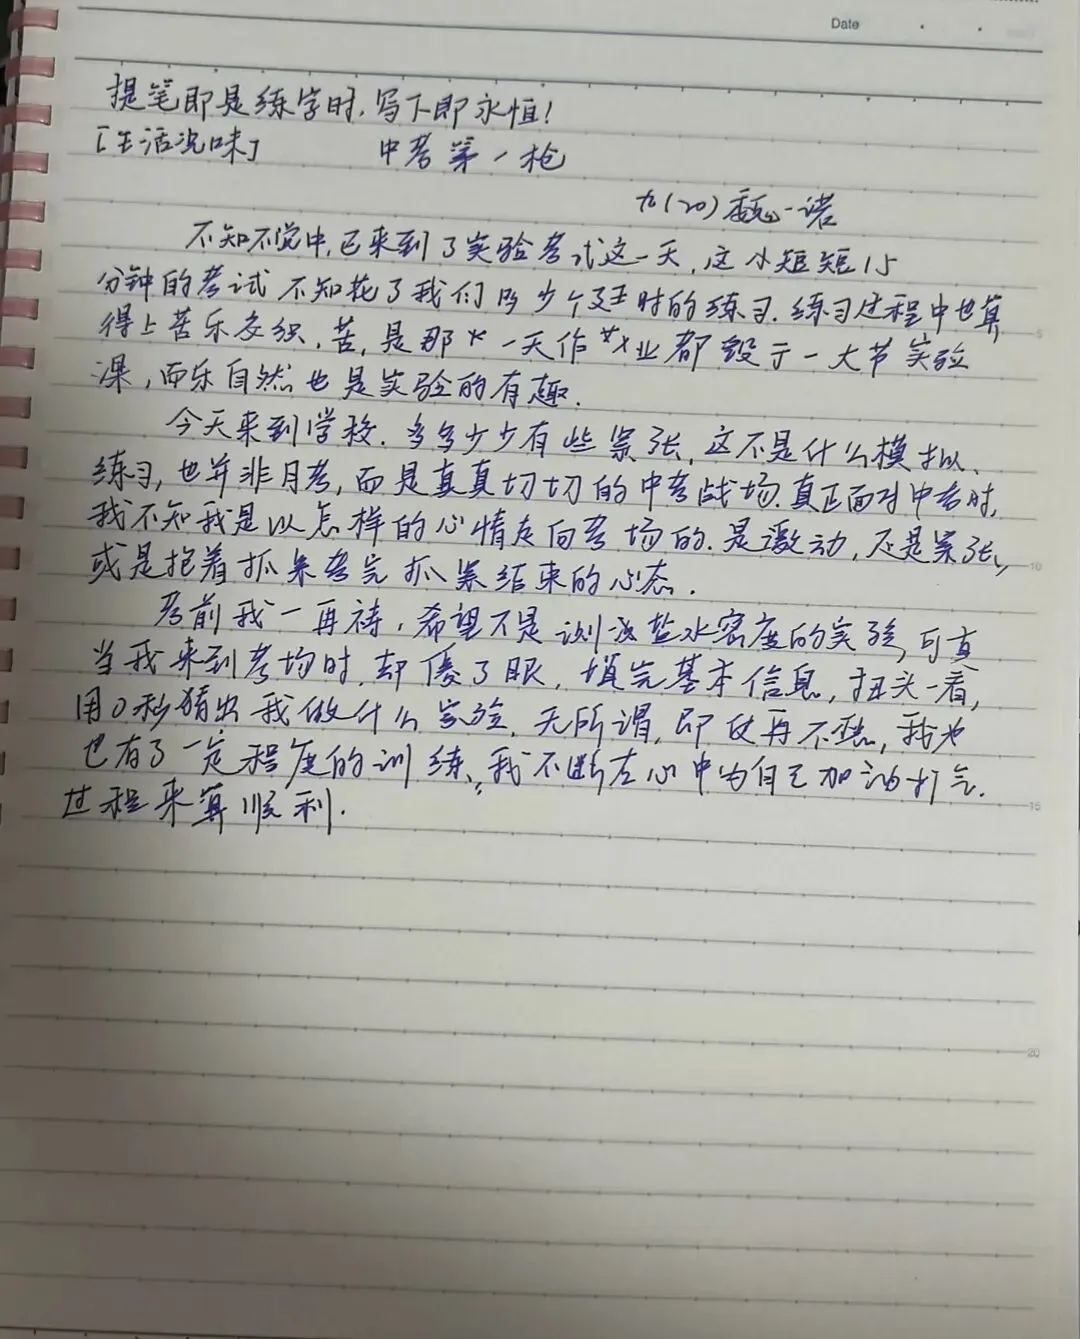 Date
提笔即是练字时,写下即永恒!
「生活况味」 中考第一枪
九(20)魏一诺
不知不觉中,已来到了实验考试这一天,这小短短15
分钟的考试不知花了我们多少个延时的练习.练习过程中也算
得上苦乐交织.苦,是那天一天作业都毁于一大节实验
课,而乐自然也是实验的有趣.
今天来到学校.多多少少有些紧张,这不是什么模拟、
练习,也并非月考,而是真真切切的中考战场.真正面对中考时,
我不知我是以怎样的心情走向考场的.是激动,还是紧张,
或是抱着抓来考完抓紧结束的心态.
考前我一再祷,希望不是测浓盐水密度的实验,可真
当我来到考场时,却傻了眼,填完基本信息,扭头一看,
用0秒猜出我做什么实验.无所谓,即使再不想,我也
也有了一定程度的训练,我不断在心中为自己加油打气.
过程来算顺利.
5
10
15
20